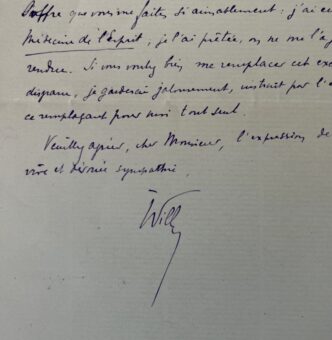 offre que vous me faites si aimablement : j'ai eu
Médecine de l'Esprit, je l'ai prêtée, on ne me l'a
rendue. Si vous voulez bien me remplacer cet ex
disparu, je garderai jalousement, instruit par l'e
ce remplaçant pour moi tout seul.
Veuillez agréer, cher Monsieur, l'expression de
vive et dévouée sympathie.
Willy